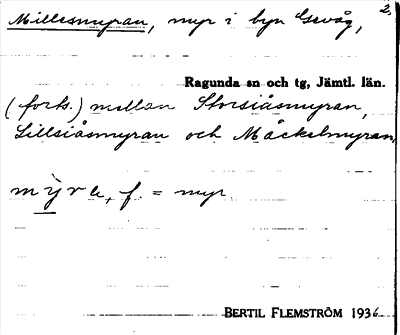 Millesmyran, myr i byn Gevåg,
2.
Ragunda sn och tg, Jämtl. län.
(forts.) mellan Storsiåsmyran,
Lillsiåsmyran och Mäckelmyran.
f. = myr
BERTIL FLEMSTRÖM 1936